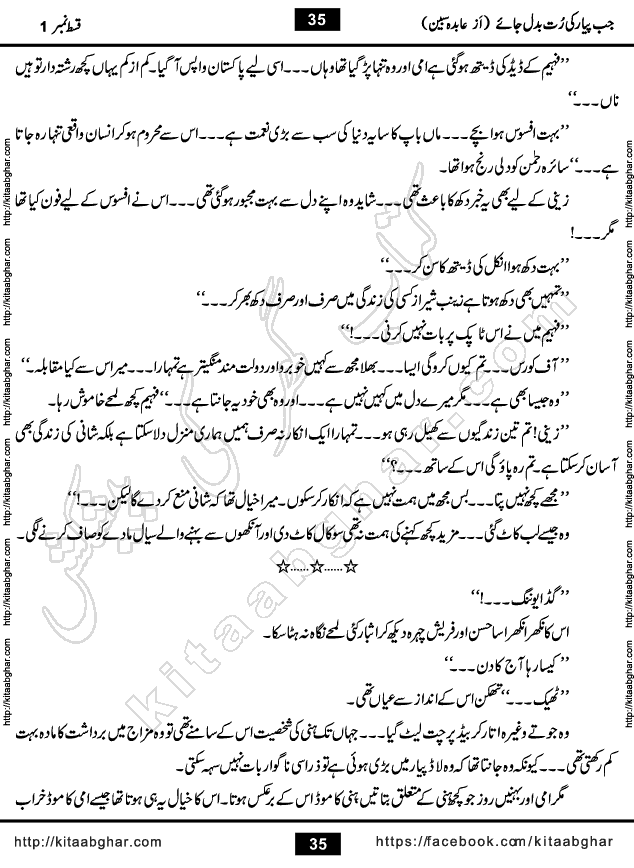 جب پیار کی رُت بدل جائے (اَز عابدہ سبین)
35
قسط نمبر 1
’’فہیم کے ڈیڈ کی ڈیتھ ہوگئی ہے امی اور وہ تنہا پڑ گیا تھا وہاں۔۔۔اسی لیے پاکستان واپس آگیا۔کم از کم یہاں کچھ رشتہ دار تو ہیں
ناں۔۔۔‘‘
’’بہت افسوس ہوا بچے۔۔۔ماں باپ کا سایہ دنیا کی سب سے بڑی نعمت ہے۔۔۔اس سے محروم ہوکر انسان واقعی تنہا رہ جاتا
ہے۔۔۔‘‘سائرہ رحمٰن کو دلی رنج ہوا تھا۔
زینی کے لیے بھی یہ خبر دکھ کا باعث تھی۔۔۔شاید وہ اپنے دل سے بہت مجبور ہوگئی تھی۔۔۔اس نے افسوس کے لیے فون کیا تھا
مگر۔۔۔!
’’بہت دکھ ہوا انکل کی ڈیتھ کا سن کر۔۔۔‘‘
’’تمہیں بھی دکھ ہوتا ہے زینب شیراز کسی کی زندگی میں صرف اور صرف دکھ بھر کر۔۔۔‘‘
’’فہیم میں نے اس ٹاپک پر بات نہیں کرنی۔۔۔!‘‘
’’آف کورس۔۔۔تم کیوں کروگی ایسا۔۔۔بھلا مجھ سے کہیں خوبرو اور دولت مند منگیتر ہے تمہارا۔۔۔میرا اس سے کیا مقابلہ۔‘‘
’’وہ جیسا بھی ہے۔۔۔مگر میرے دل میں کہیں نہیں ہے۔۔۔اور وہ بھی خود یہ جانتا ہے۔۔۔‘‘فہیم کچھ لمحے خاموش رہا۔
’’زینی! تم تین زندگیوں سے کھیل رہی ہو۔۔۔تمہارا ایک انکار نہ صرف ہمیں ہماری منزل دلا سکتا ہے بلکہ شانی کی زندگی بھی
آسان کرسکتا ہے۔تم رہ پاؤگی اس کے ساتھ۔۔۔؟‘‘
’’مجھے کچھ نہیں پتا۔۔۔بس مجھ میں ہمت نہیں ہے کہ انکار کرسکوں۔میرا خیال تھا کہ شانی منع کردے گا لیکن۔۔۔!‘‘
وہ جیسے لب کاٹ گئی۔۔۔مزید کچھ کہنے کی ہمت نہ تھی سو کال کاٹ دی اور آنکھوں سے بہنے والے سیال مادے کو صاف کرنے لگی۔
☆......☆......☆
’’گڈ ایوننگ۔۔۔!‘‘
اس کا نکھرا نکھرا سا حسن اور فریش چہرہ دیکھ کر ایثار کئی لمحے نگاہ نہ ہٹا سکا۔
’’کیسا رہا آج کا دن۔۔۔‘‘
’’ٹھیک۔۔۔‘‘تھکن اس کے انداز سے عیاں تھی۔
وہ جوتے وغیرہ اتار کر بیڈ پر چت لیٹ گیا۔۔۔جہاں تک ہنی کی شخصیت اس کے سامنے تھی تو وہ مزاج میں برداشت کا مادہ بہت
کم رکھتی تھی۔۔۔کیونکہ وہ جانتا تھا کہ وہ لاڈ پیار میں بڑی ہوئی ہے تو ذرا سی ناگوار بات نہیں سہہ سکتی۔
مگر امی اور بہنیں روز جو کچھ ہنی کے متعلق بتاتیں ہنی کا موڈ اس کے برعکس ہوتا۔اس کا خیال یہ ہی ہوتا تھا جیسے امی کا موڈ خراب
http://kitaabghar.com
35
https://facebook.com/kitaabghar
http://kitaabghar.com
http://kitaabghar.com
http://kitaabghar.com
http://kitaabghar.com
http://kitaabghar.com
http://kitaabghar.com
http://kitaabghar.com
http://kitaabghar.com
http://kitaabghar.com
http://kitaabghar.com
http://kitaabghar.com
http://kitaabghar.com
کتاب گھر کی پیشکش
kitaabghar.com